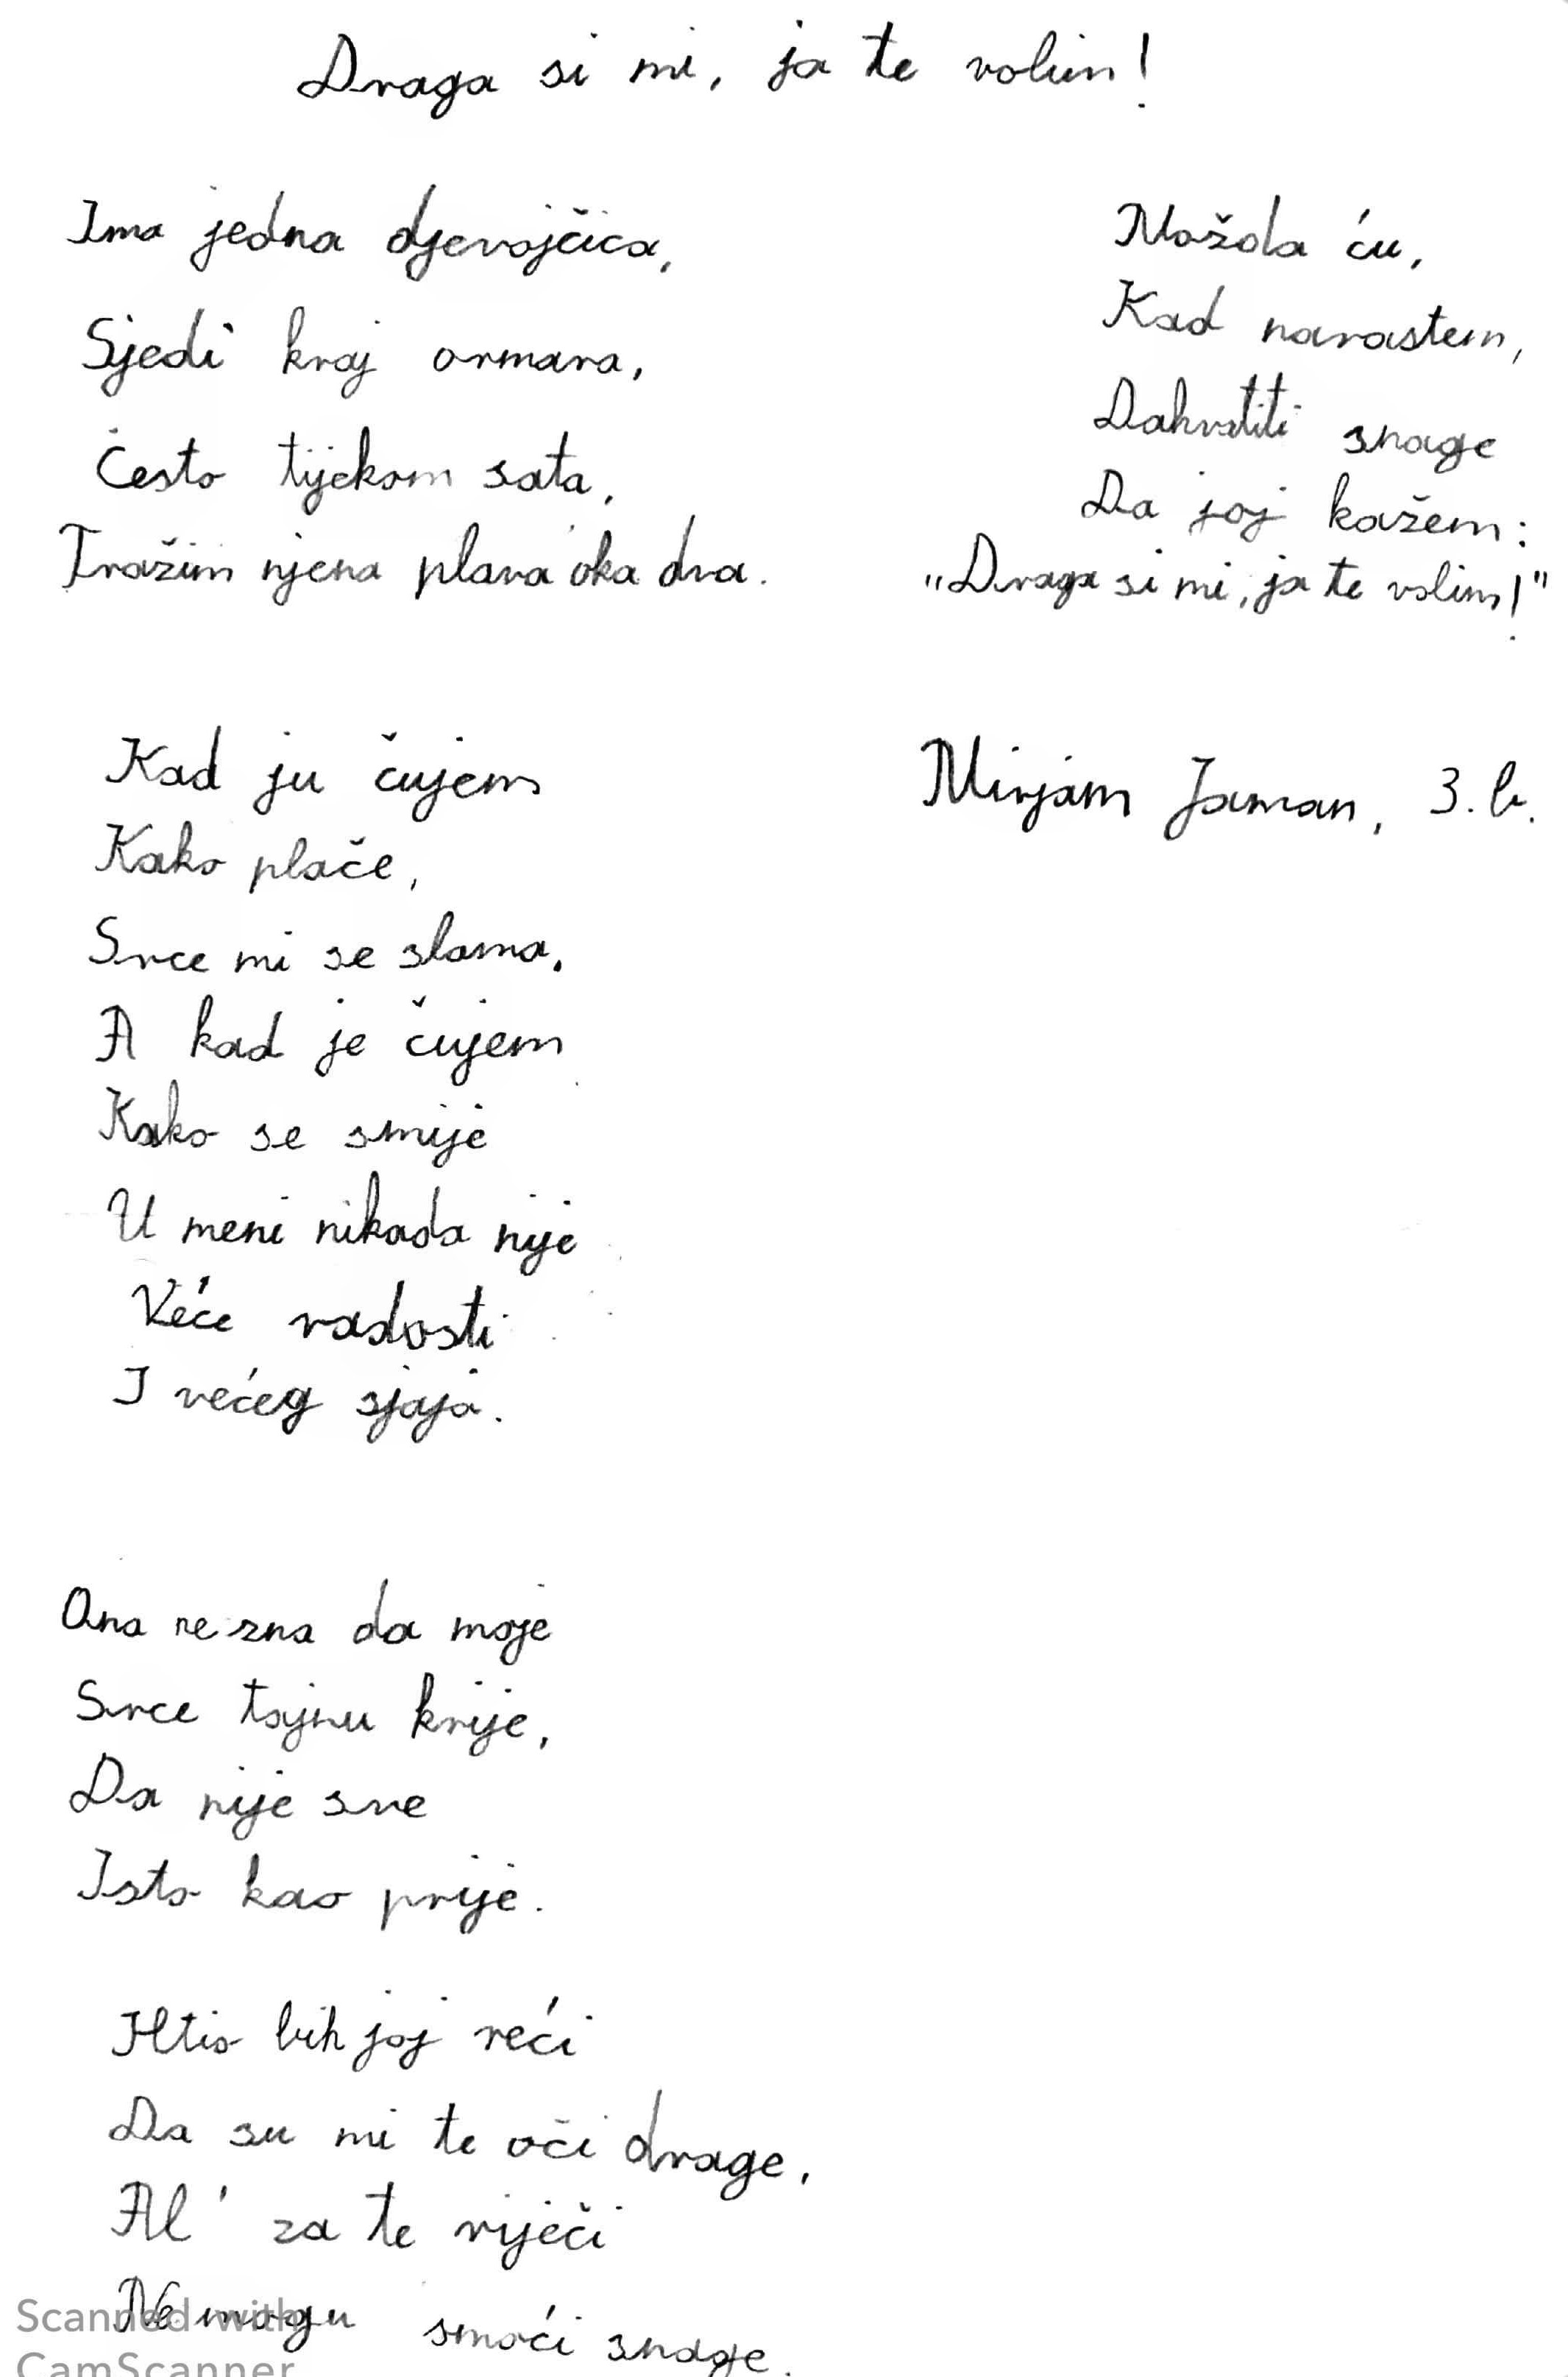 Draga si mi, ja te volim!
Ima jedna djevojčica,
Sjedi kraj ormara,
Često tijekom sata,
Tražim njena plava oka dva.
Kad ju čujem
Kako plače,
Srce mi se slama.
A kad je čujem
Kako se smije
U meni nikada nije
Veće radosti
I većeg sjaja.
Ona ne zna da moje
Srce tajnu krije,
Da nije sve
Isto kao prije.
Htio bih joj reći
Da su mi te oči drage,
Al' za te riječi
Ne mogu smoći snage.
Možda ću,
Kad narastem,
Dahvatiti snage
Da joj kažem:
"Draga si mi, ja te volim!"
Mirjam Jaman, 3. b.
Scanned with
CamScanner